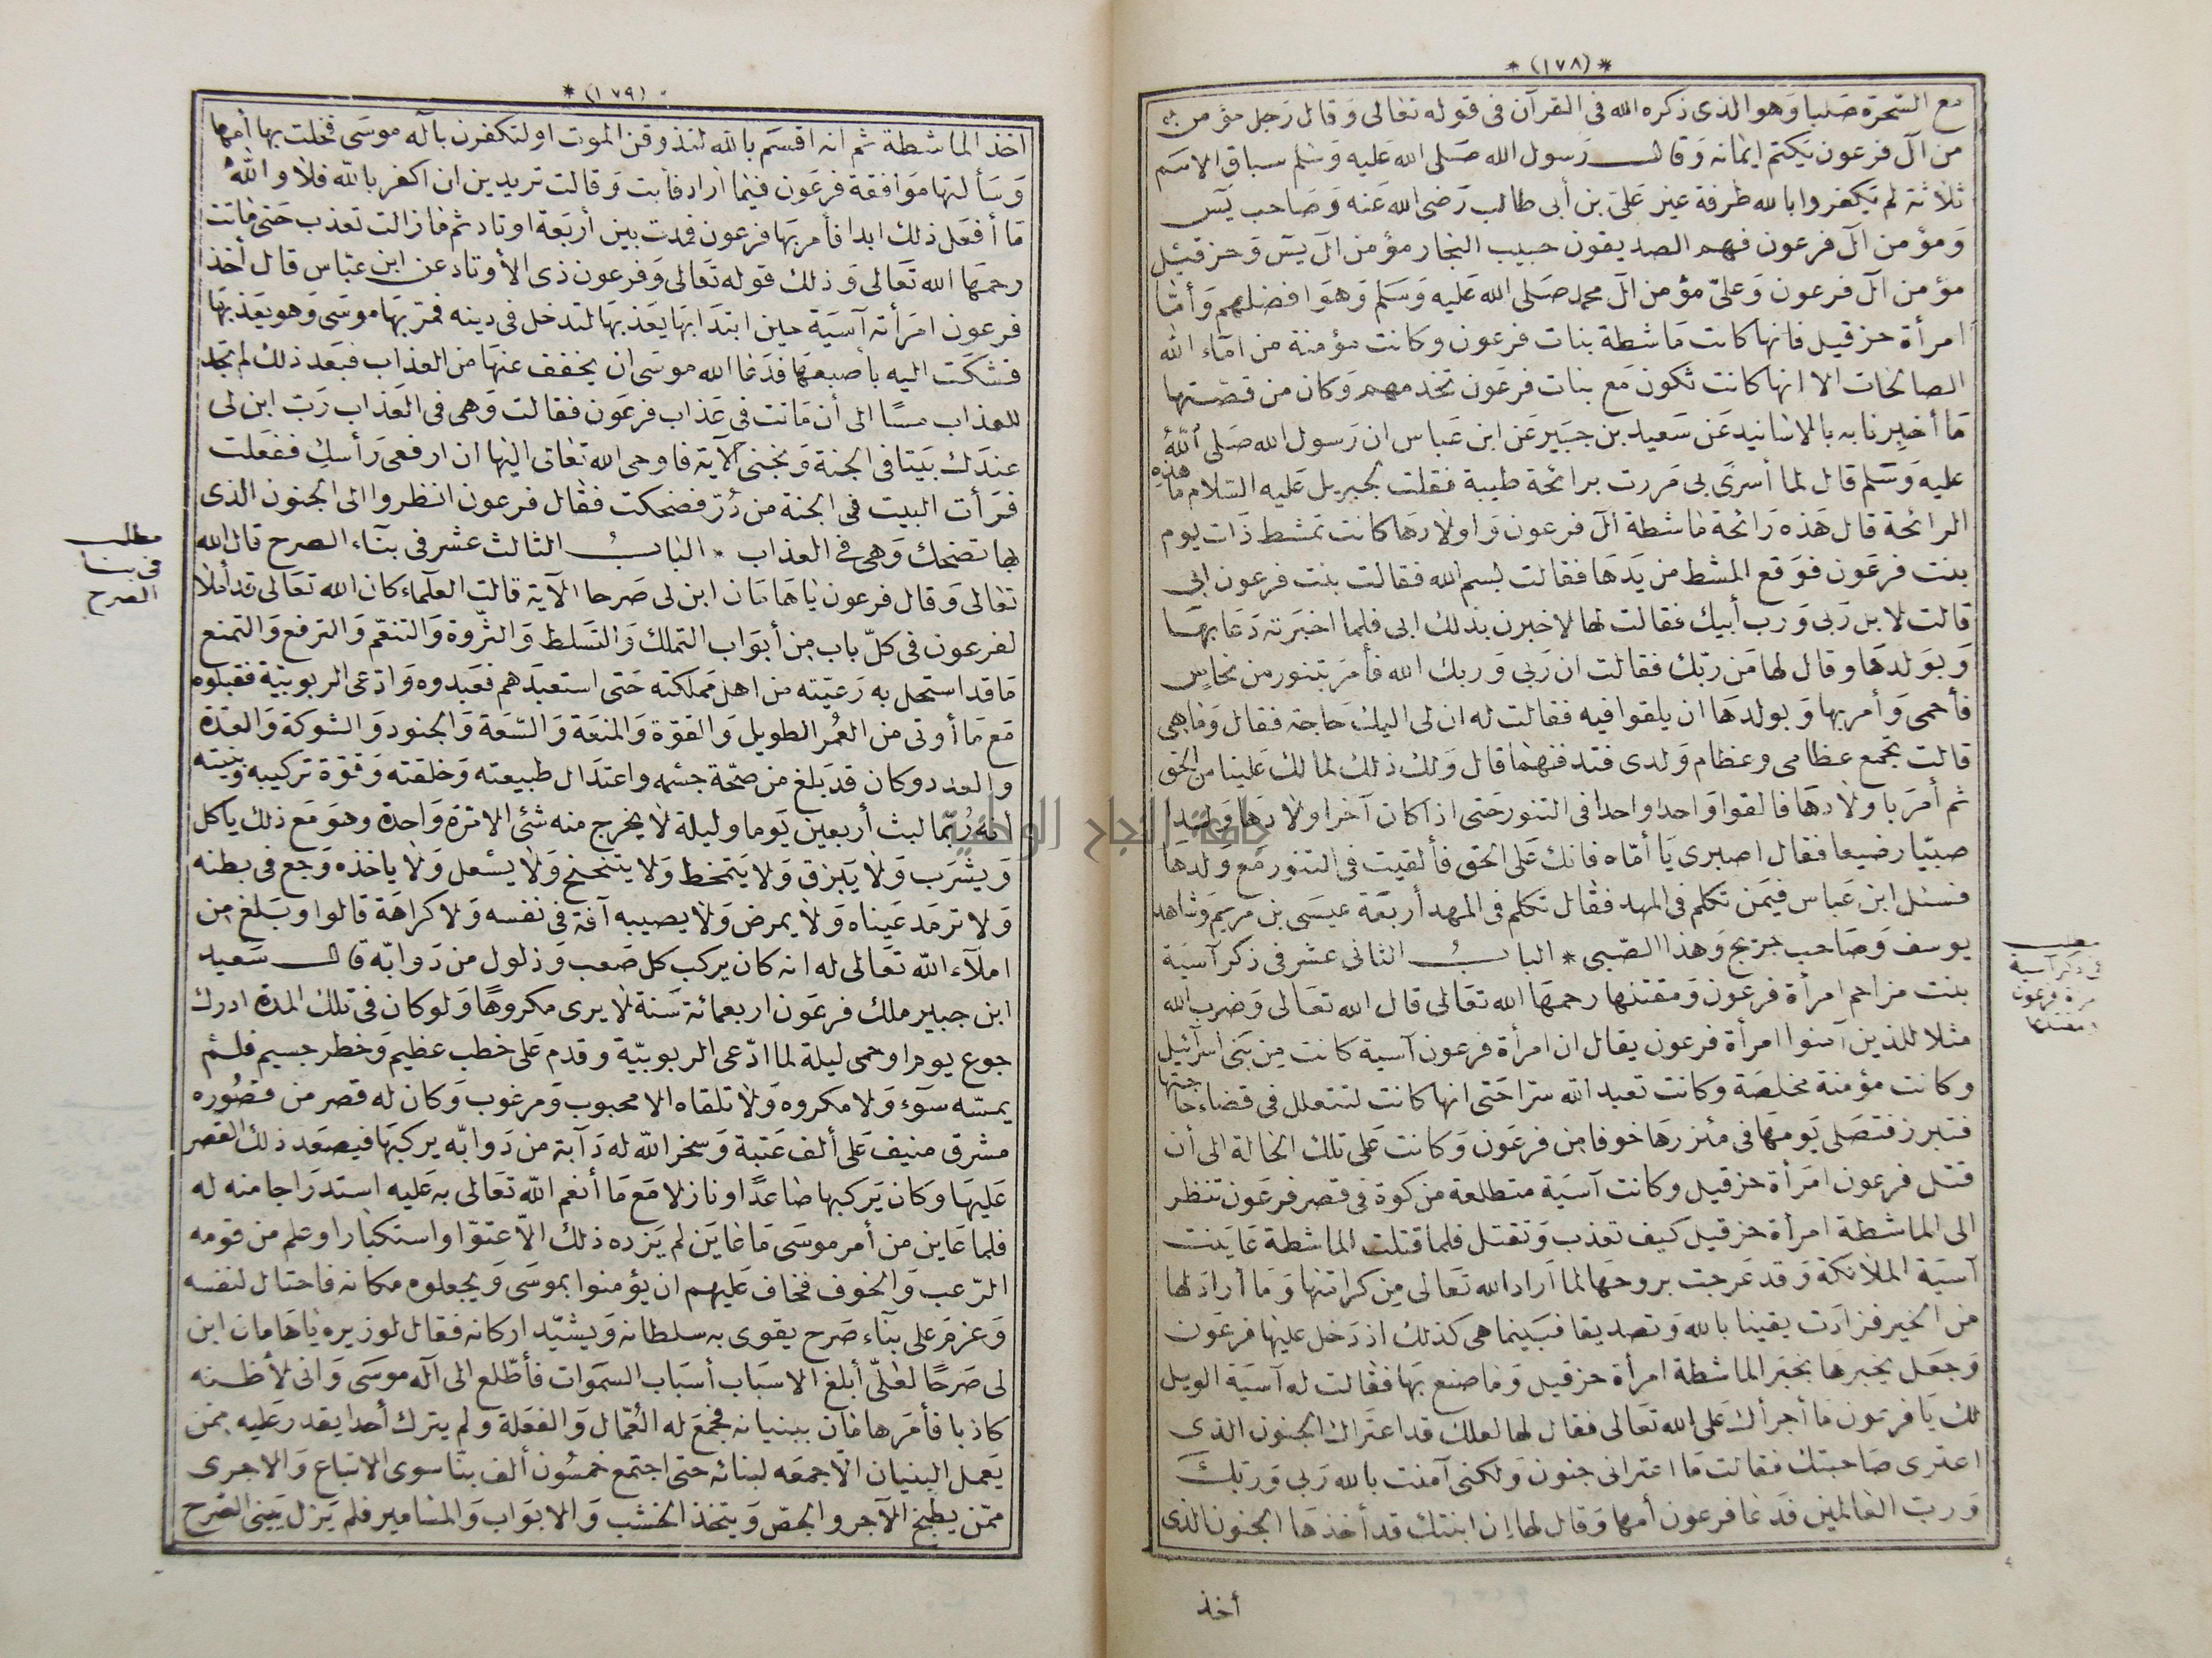 *(١٧٨)*
مع السحرة صلبا وهو الذى ذكره الله فى القرآن فى قوله تعالى وقال رجل مؤمن
من آل فرعون يكتم إيمانه وقال رسول الله صلى الله عليه وسلم سباق الامم
ثلاثة لم يكفروا بالله طرفة عين على بن أبى طالب رضى الله عنه وصاحب يس
ومؤمن آل فرعون فهم الصديقون حبيب النجار مؤمن آل يس وحزقيل
مؤمن آل فرعون وعلىّ مؤمن آل محمد صلى الله عليه وسلم وهو افضلهم وأما
امرأة حزقيل فانها كانت ماشطة بنات فرعون وكانت مؤمنة من اماء الله
الصالحات الا انها كانت تكون مع بنات فرعون تخدمهم وكان من قصتها
ما أخبرنا به بالاسانيد عن سعيد بن جبير عن ابن عباس ان رسول الله صلى الله
عليه وسلم قال لما أسرى بى مررت برائحة طيبة فقلت لجبريل عليه السلام ما هذه
الرائحة قال هذه رائحة ماشطة آل فرعون واولادها كانت تمشط ذات يوم
بنت فرعون فوقع المشط من يدها فقالت بسم الله فقالت بنت فرعون ابى
قالت لا بل ربى ورب أبيك فقالت لها لاخبرن بذلك ابى فلما اخبرته دعا بها
وبولدها وقال لها من ربّك فقالت ان ربى وربك الله فأمر بتنور من نحاس
فأحمى وأمر بها وبولدها ان يلقوا فيه فقالت له ان لى اليك حاجة فقال وما هى
قالت تجمع عظامى وعظام ولدى فتدفنهما قال ولك ذلك لما لك علينا من الحق
ثم أمر باولادها فالقوا واحدا واحدا فى التنور حتى اذا كان آخر اولادها ولدا
صبيّا رضيعا فقال اصبرى يا أمّاه فانك على الحق فألقيت فى التنور مع ولدها
فسئل ابن عباس فيمن تكلم فى المهد فقال تكلم فى المهد أربعة عيسى بن مريم وشاهد
يوسف وصاحب جريج وهذا الصبى * الباب الثانى عشر فى ذكر آسية
بنت مزاحم امرأة فرعون ومقتلها رحمها الله تعالى قال الله تعالى وضرب الله
مثلا للذين آمنوا امرأة فرعون يقال ان امرأة فرعون آسية كانت من بنى اسرائيل
وكانت مؤمنة مخلصة وكانت تعبد الله سرا حتى انها كانت لتتعلل فى قضاء حاجتها
فتبرز فتصلى يومها فى مئزرها خوفا من فرعون وكانت على تلك الحالة الى أن
قتل فرعون امرأة حزقيل وكانت آسية متطلعة من كوة فى قصر فرعون تنظر
الى الماشطة امرأة حزقيل كيف تعذب وتقتل فلما قتلت الماشطة عاينت
آسية الملائكة وقد عرجت بروحها لما اراد الله تعالى من كرامتها وما أراد لها
من الخير فزادت يقينا بالله وتصديقا فبينما هى كذلك اذ دخل عليها فرعون
وجعل يخبرها بخبر الماشطة امرأة حزقيل وما صنع بها فقالت له آسية الويل
لك يا فرعون ما أجرأك على الله تعالى فقال لها لعلك قد اعتراك الجنون الذى
اعترى صاحبتك فقالت ما اعترانى جنون ولكنى آمنت بالله ربى وربك
ورب العالمين فدعا فرعون أمها وقال لها إن ابنتك قد أخذها الجنون الذى
أخذ
مطلب
فى ذكر آسية
امرأة فرعون
ومقتلها
(١٧٩)*
اخذ الماشطة ثم انه اقسم بالله لتذوقن الموت او لتكفرن بآله موسى فخلت بها أمها
وسألتها موافقة فرعون فيما اراد فأبت وقالت تريدين ان اكفر بالله فلا والله
ما أفعل ذلك ابدا فأمر بها فرعون فمدت بين أربعة اوتاد ثم ما زالت تعذب حتى ماتت
رحمها الله تعالى وذلك قوله تعالى وفرعون ذى الأوتاد عن ابن عباس قال أخذ
فرعون امرأته آسية حين ابتدا بها يعذبها لتدخل فى دينه فمر بها موسى وهو يعذبها
فشكت اليه بأصبعها فدعا الله موسى ان يخفف عنها من العذاب فبعد ذلك لم تجد
للعذاب مسّا الى أن ماتت فى عذاب فرعون فقالت وهى فى العذاب رب ابن لى
عندك بيتا فى الجنة ونجنى الآية فاوحى الله تعالى اليها ان ارفعى رأسك ففعلت
فرأت البيت فى الجنة من درّ فضحكت فقال فرعون انظروا الى الجنون الذى
بها تضحك وهى فى العذاب * الباب الثالث عشر فى بناء الصرح قال الله
تعالى وقال فرعون يا هامان ابن لى صرحا الآية قالت العلماء كان الله تعالى قد أملا
لفرعون فى كلّ باب من أبواب التملك والتسلط والثروة والتنعّم والترفع والتمنع
ما قد استحل به رعيّته من اهل مملكته حتى استعبدهم فعبدوه وادّعى الربوبيّة فقبلوه
مع ما أوتى من العُمُر الطويل والقوّة والمنعة والسّعة والجنود والشوكة والعدّة
والعدد وكان قد بلغ من صحّة جسمه واعتدال طبيعته وخلقته وقوّة تركيبه وبنيته
انه ربّما لبث أربعين يوما وليلة لا يخرج منه شئى الا مرّة واحدة وهو مع ذلك يأكل
ويشرب ولا يبزق ولا يتمخط ولا يتنحنح ولا يسعل ولا ياخذه وجع فى بطنه
ولا ترمد عيناه ولا يمرض ولا يصيبه آفة فى نفسه ولا كراهة قالوا وبلغ من
املآء الله تعالى له انه كان يركب كل صعب وذلول من دوابّه قال سعيد
ابن جبير ملك فرعون اربعمائة سنة لا يرى مكروهًا ولو كان فى تلك المدة ادرك
جوع يوم او حمى ليلة لما ادّعى الربوبيّة وقدم على خطب عظيم وخطر جسيم فلم
يمسّه سوء ولا مكروه ولا تلقاه الا محبوب ومرغوب وكان له قصر من قصوره
مشرق منيف على ألف عتبة وسخر الله له دآبة من دوابّه يركبها فيصعد ذلك القصر
عليها وكان يركبها صاعدًا او نازلا مع ما أنعم الله تعالى به عليه استدراجا منه له
فلما عاين من أمر موسى ما عاين لم يزده ذلك الّا عتوّا واستكبارا وعلم من قومه
الرّعب والخوف فخاف عليهم ان يؤمنوا بموسى ويجعلوه مكانه فاحتال لنفسه
وعزم على بناء صرح يقوى به سلطانه ويشيّد اركانه فقال لوزيره يا هامان ابن
لى صرحًا لعلّى أبلغ الاسباب أسباب السموات فأطّلع الى آله موسى وانى لأظنه
كاذبا فأمر هامان ببنيانه فجمع له العُمّال والفعلة ولم يترك أحدا يقدر عليه ممّن
يعمل البنيان الّا جمعه لبنائه حتى اجتمع خمسُون ألف بنّا سوى الاتباع والاجرى
ممّن يطبخ الآجر والجصّ ويتخذ الخشب والابواب والمسامير فلم يزل يبنى الصرح
مطلب
فى بناء
الصرح
جامعة النجاح الوطنية